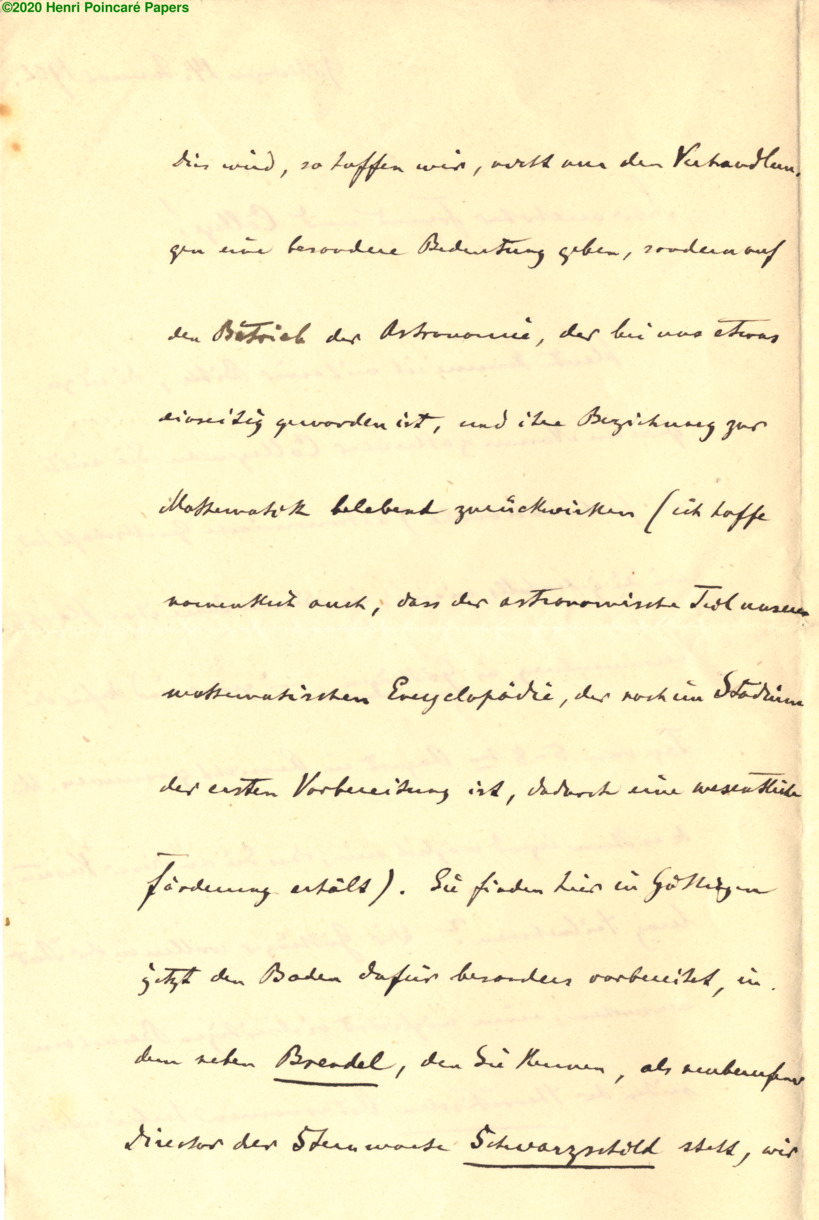 ©2020 Henri Poincaré Papers
Dies wird, so hoffen wir, nicht nur den Verhandlun-
gen eine besondere Bedeutung geben, sondern auf
den Betrieb der Astronomie, der bei uns etwas
einseitig geworden ist, und ihre Beziehung zur
Mathematik belebend zurückwirken (ich hoffe
namentlich auch, dass der astronomische Teil unserer
mathematischen Encyclopädie, der noch im Stadium
der ersten Vorbereitung ist, dadurch eine wesentliche
Förderung erhält). Sie finden hier in Göttingen
jetzt den Boden dafür besonders vorbereitet, in-
dem neben Brendel, den Sie kennen, als neuberufener
Director der Sternwarte Schwarzschild steht, wir